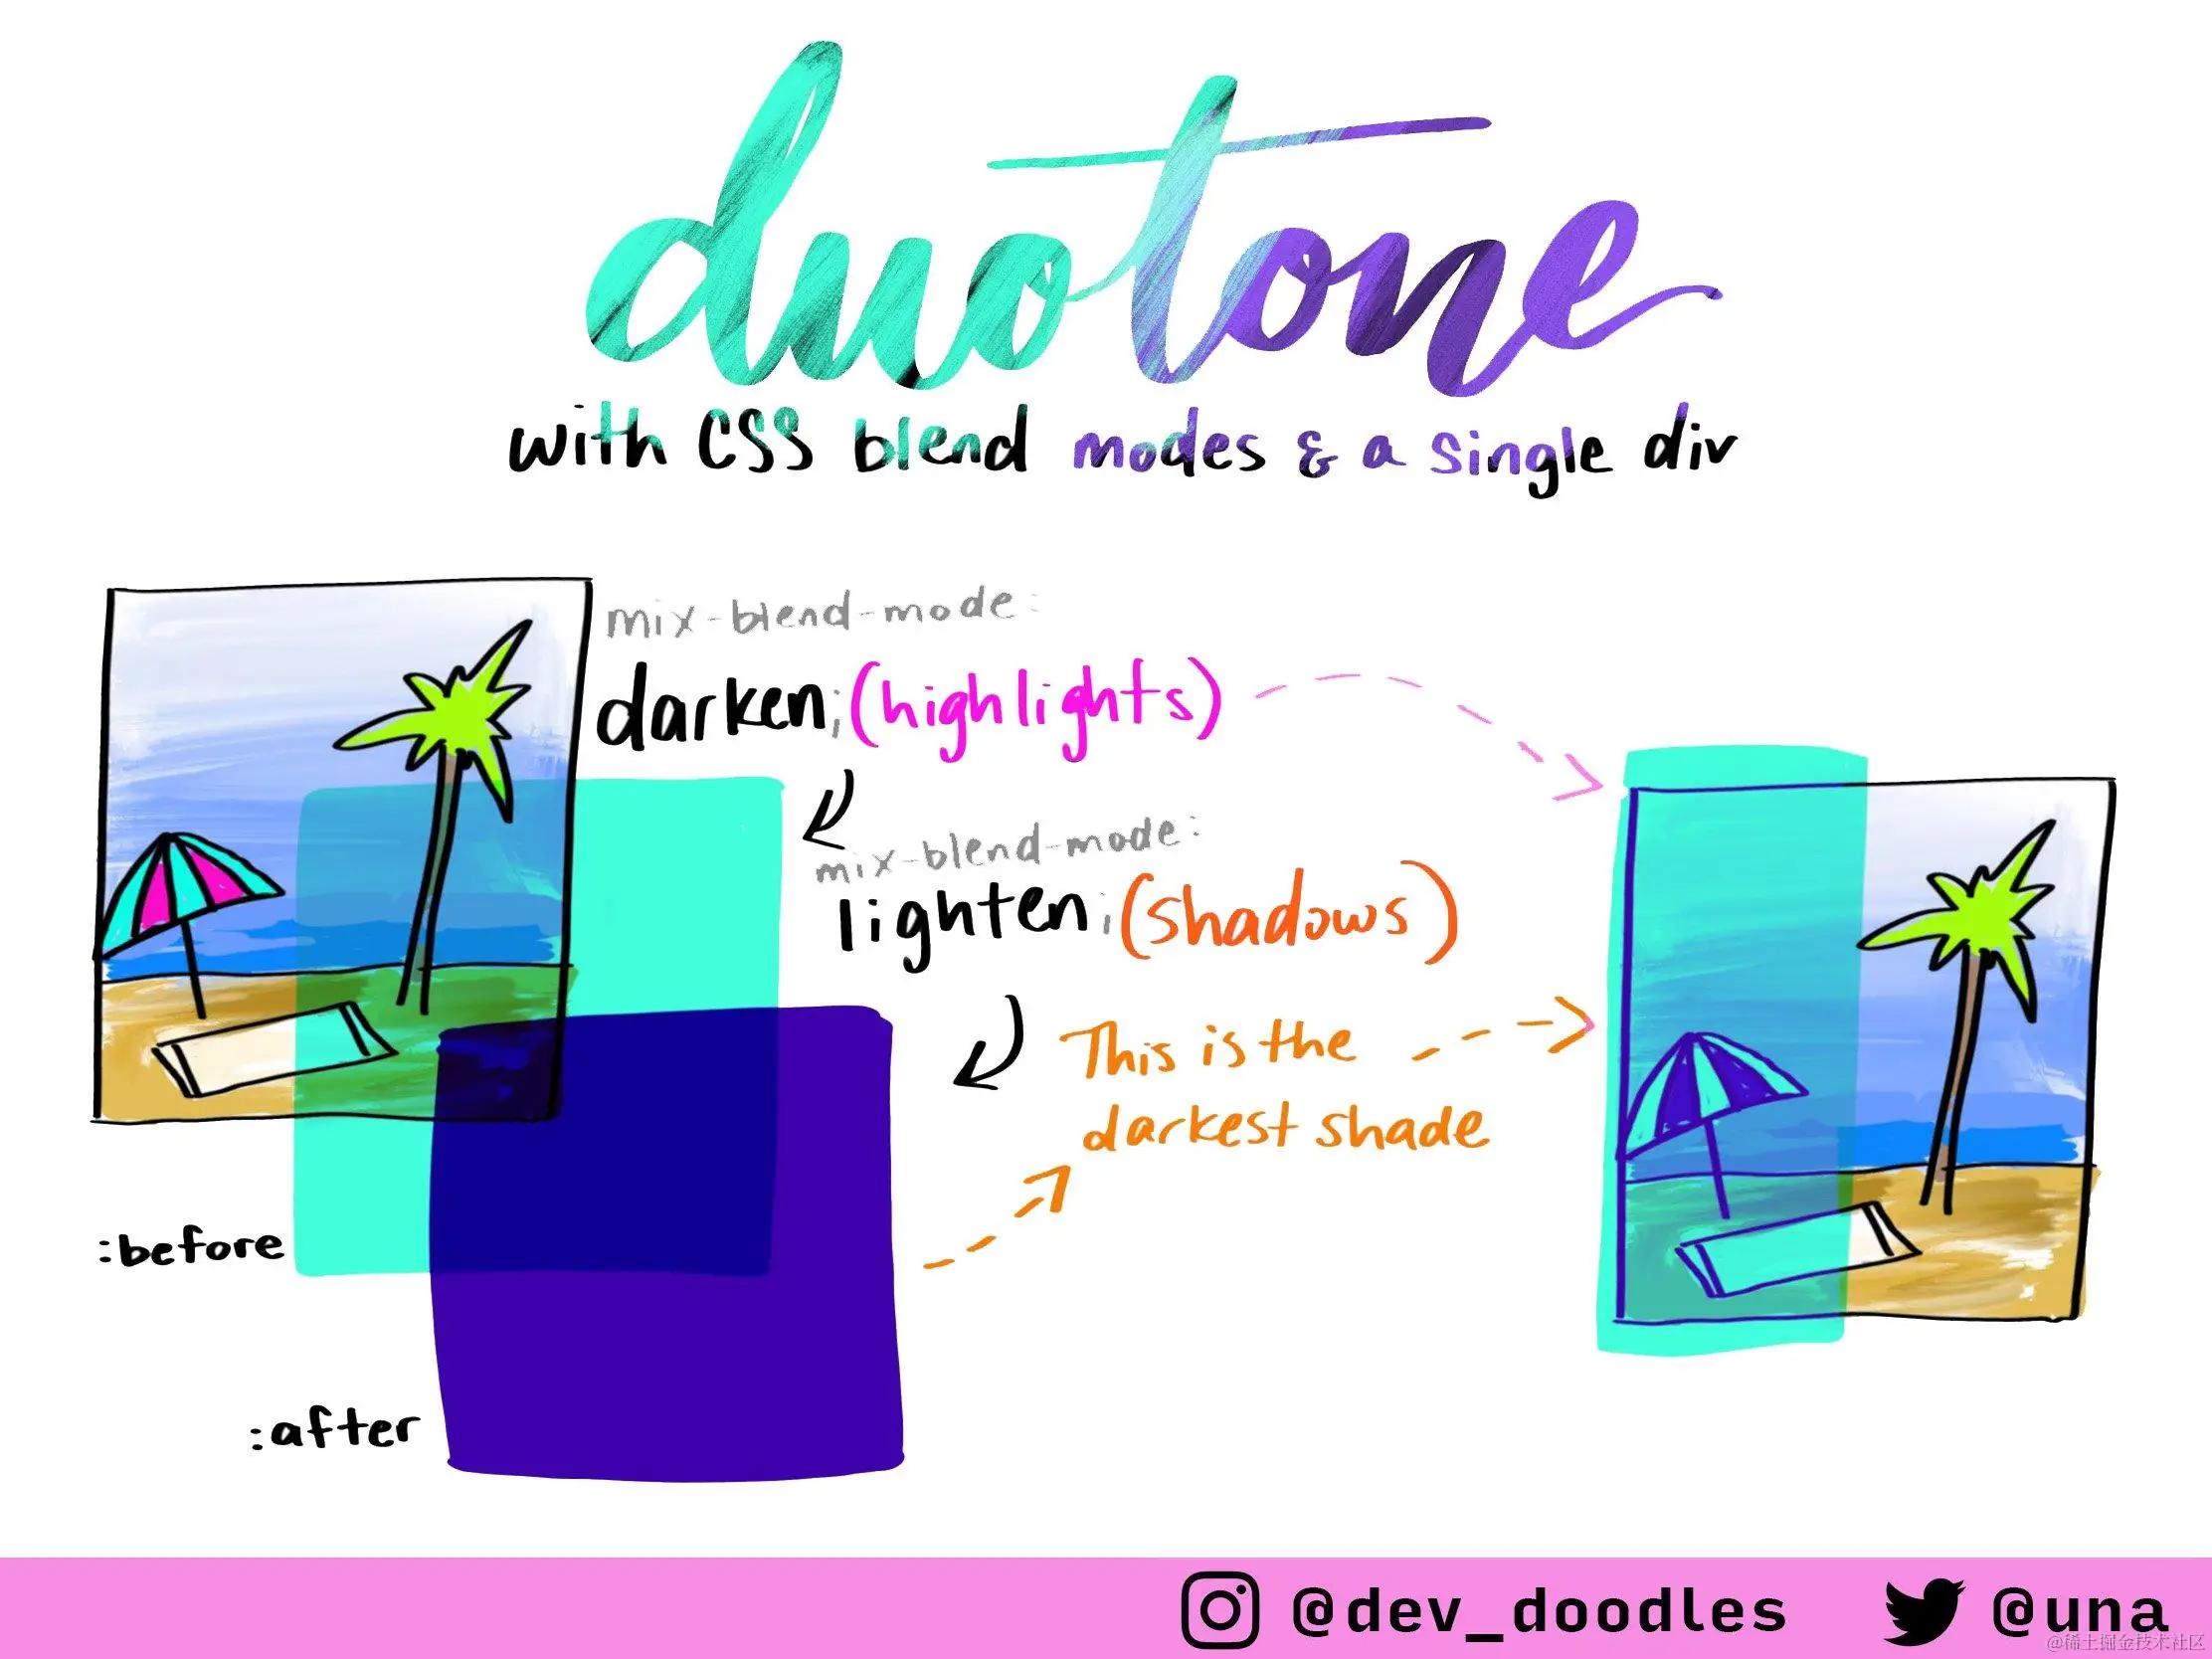 duotone
with CSS blend modes & a single div
mix-blend-mode:
darken; (highlights)
mix-blend-mode:
lighten; (shadows)
This is the
darkest shade
:before
:after
@dev_doodles @una
@稀土掘金技术社区